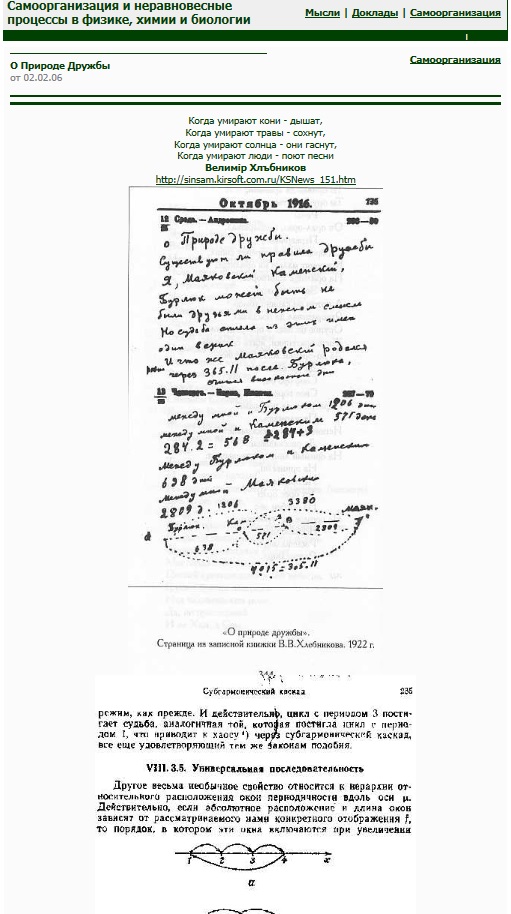 Самоорганизация и неравновесные
процессы в физике, химии и биологии
Мысли | Доклады | Самоорганизация
О Природе Дружбы
от 02.02.06
Самоорганизация
Когда умирают кони - дышат,
Когда умирают травы - сохнут,
Когда умирают солнца - они гаснут,
Когда умирают люди - поют песни
Велимiр Хлѣбников
http://sinsam.kirsoft.com.ru/KSNews_151.htm
Октябрь 1916.
О Природе дружбы.
Существуют ли правила дружбы
Я, Маяковский Каменский,
Бурлюк может быть не
были друзьями в нежном смысле
Но судьба из этих имен
один
И что же Маяковскій родился
через 365.11 после Бурлюка,
между мной и Бурлюком 1206 дн
между мной и Каменским 571 дней
284.2 = 568
Между Бурлюком и Каменским
638 дней
Между мной - Маяковски
2809 д.
1206
3380
Бурлюк.
Кам
Маяк.
638
571
2809
«О природе дружбы».
Страница из записной книжки В.В.Хлебникова. 1922 г.
Субгармонический каскад
235
режим, как прежде. И действительно, цикл с периодом 3 пости-
гает судьба, аналогичная той, которая постигла цикл с перио-
дом 1, что приводит к хаосу⁴) через субгармонический каскад,
все еще удовлетворяющий тем же законам подобия.
VIII.3.5. Универсальная последовательность
Другое весьма необычное свойство относится к иерархии от-
носительного расположения окон периодичности вдоль оси μ.
Действительно, если абсолютное расположение и длина окон
зависят от рассматриваемого нами конкретного отображения f,
то порядок, в котором эти окна включаются при увеличении
1 2 3 4 x
а